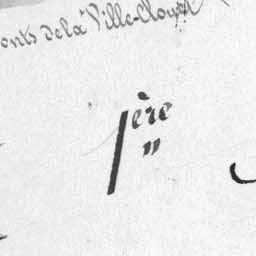 onts de la Ville-Clouet
1ère
"